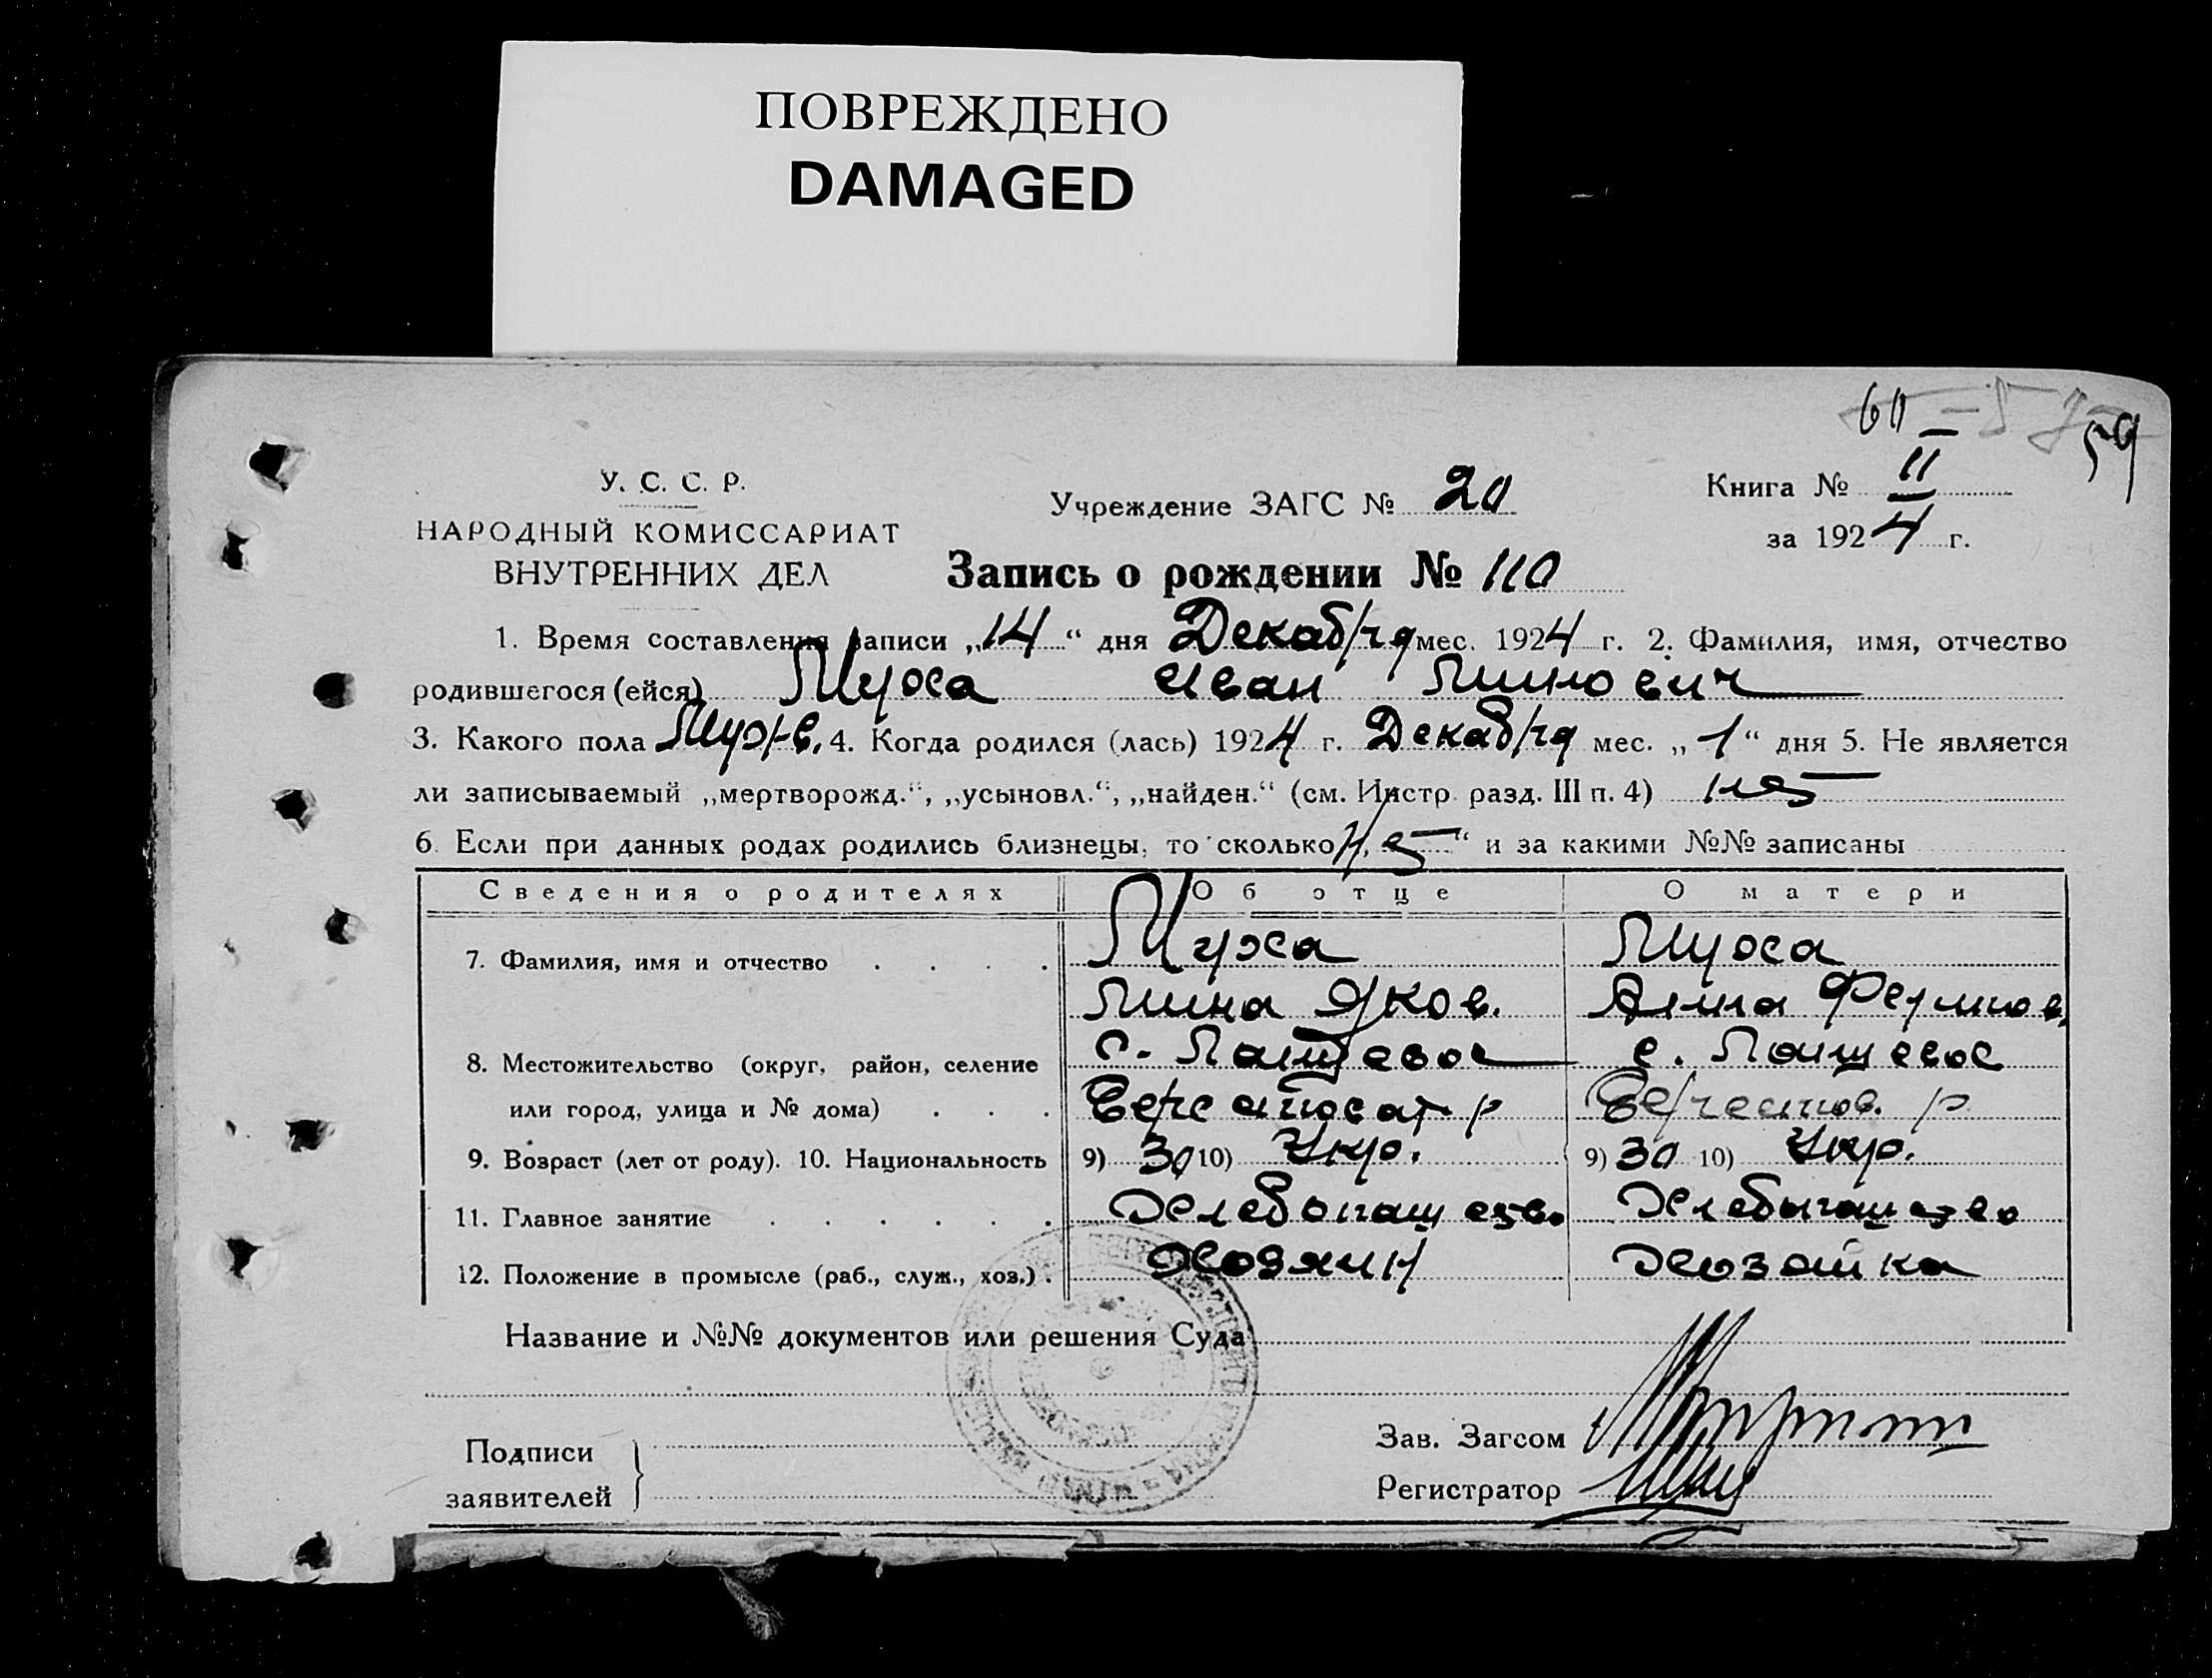 ПОВРЕЖДЕНО
DAMAGED
60 59
У. С. С. Р.
НАРОДНЫЙ КОМИССАРИАТ
ВНУТРЕННИХ ДЕЛ
Учреждение ЗАГС № 20
Книга № II
за 1924 г.
Запись о рождении № 110
1. Время составления записи „14“ дня Декабря мес. 1924 г. 2. Фамилия, имя, отчество
родившегося (ейся) Муха Иван Минович
3. Какого пола Муж. 4. Когда родился (лась) 1924 г. Декабря мес. „1“ дня 5. Не является
ли записываемый „мертворожд.“, „усыновл.“, „найден.“ (см. Инстр. разд. III п. 4) нет
6. Если при данных родах родились близнецы, то сколько нет“ и за какими №№ записаны
Сведения о родителях Об отце О матери
7. Фамилия, имя и отчество Муха Муха
Мина Яков. Анна
8. Местожительство (округ, район, селение с. с.
или город, улица и № дома) р р
9. Возраст (лет от роду). 10. Национальность 9) 30 10) Укр. 9) 30 10) Укр.
11. Главное занятие Хлебопашество Хлебопашество
12. Положение в промысле (раб., служ., хоз.) Хозяин Хозяйка
Название и №№ документов или решения Суда
Подписи
заявителей
Зав. Загсом
Регистратор